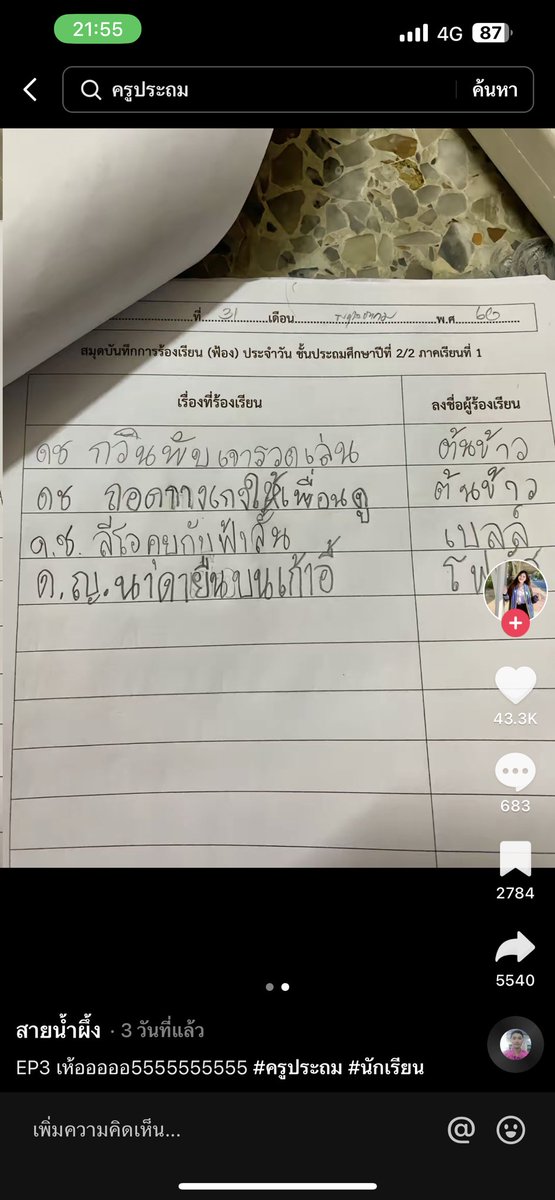 21:55
4G 87
ครูประถม
ค้นหา
ที่ 31 เดือน พ.ศ.
สมุดบันทึกการร้องเรียน (ฟ้อง) ประจำวัน ชั้นประถมศึกษาปีที่ 2/2 ภาคเรียนที่ 1
เรื่องที่ร้องเรียน ลงชื่อผู้ร้องเรียน
ดช กวินพับเจารวดเล่น ต้นข้าว
ดช ถอดกางเกงให้เพื่อนดู ต้นข้าว
ด.ช. ลีโอคุยกับฟ้าลั่น เบลล์
ด.ญ. นาดายืนบนเก้าอี้
43.3K
683
2784
5540
สายน้ำผึ้ง · 3 วันที่แล้ว
EP3 เห้อออออ5555555555 #ครูประถม #นักเรียน
เพิ่มความคิดเห็น...